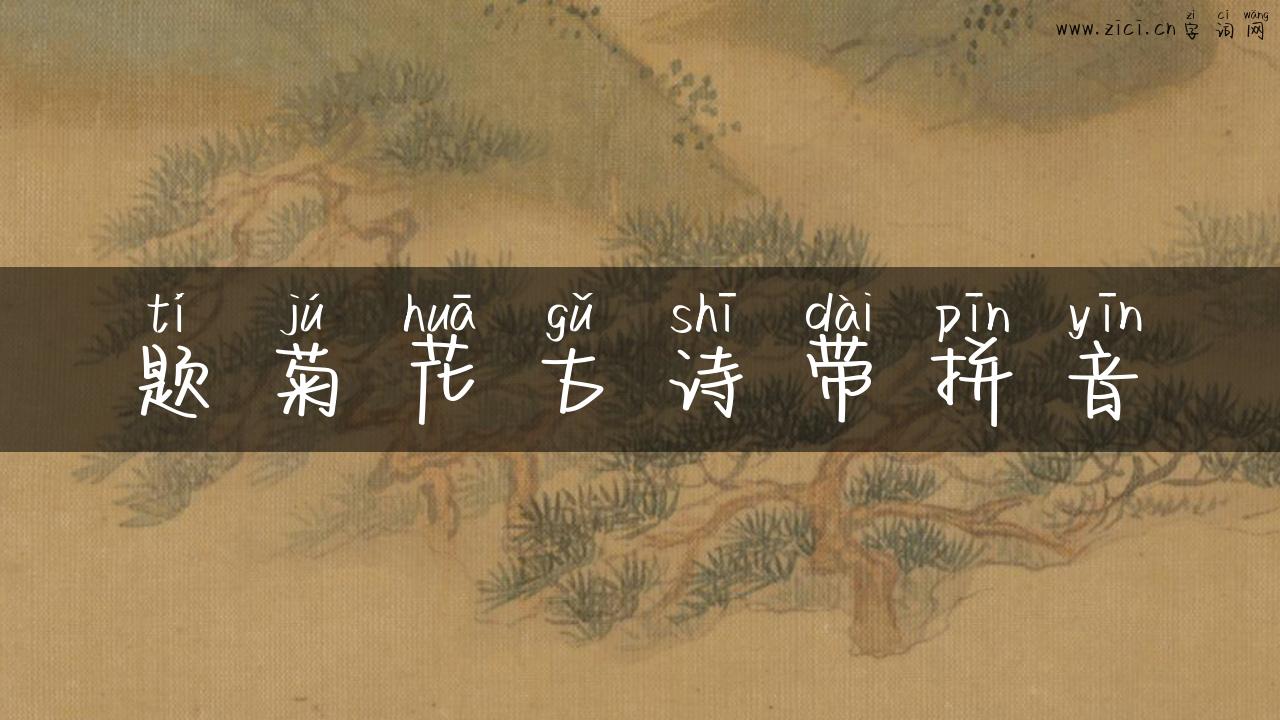 zì cí wǎng
www.zici.cn 字词网
tí jú huā gǔ shī dài pīn yīn
题菊花古诗带拼音